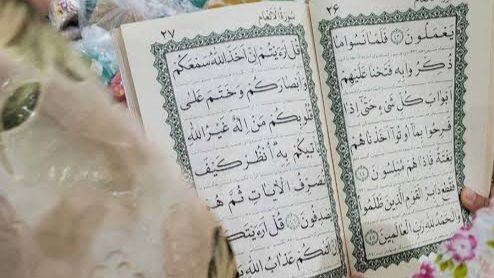 ٢٦
يَعْمَلُونَ ﴿٤٣﴾ فَلَمَّا نَسُوا مَا
ذُكِّرُوا بِهِ فَتَحْنَا عَلَيْهِمْ
اَبْوَابَ كُلِّ شَيْءٍ حَتَّى إِذَا
فَرِحُوا بِمَا أُوتُوا أَخَذْنَاهُمْ
بَغْتَةً فَإِذَا هُمْ مُبْلِسُونَ ﴿٤٤﴾
فَقُطِعَ دَابِرُ الْقَوْمِ الَّذِينَ ظَلَمُوا
وَالْحَمْدُ لِلَّهِ رَبِّ الْعَالَمِينَ ﴿٤٥﴾
سُورَةُ الْأَنْعَامِ ٢٧
قُلْ أَرَأَيْتُمْ إِنْ أَخَذَ اللهُ سَمْعَكُمْ
وَأَبْصَارَكُمْ وَخَتَمَ عَلَى
قُلُوبِكُمْ مَنْ إِلَهٌ غَيْرُ اللهِ
بِهِ انْظُرْ كَيْفَ
نُصَرِّفُ الْآيَاتِ ثُمَّ
يَصْدِفُونَ ﴿٤٦﴾ قُلْ
عَذَابُ اللهِ